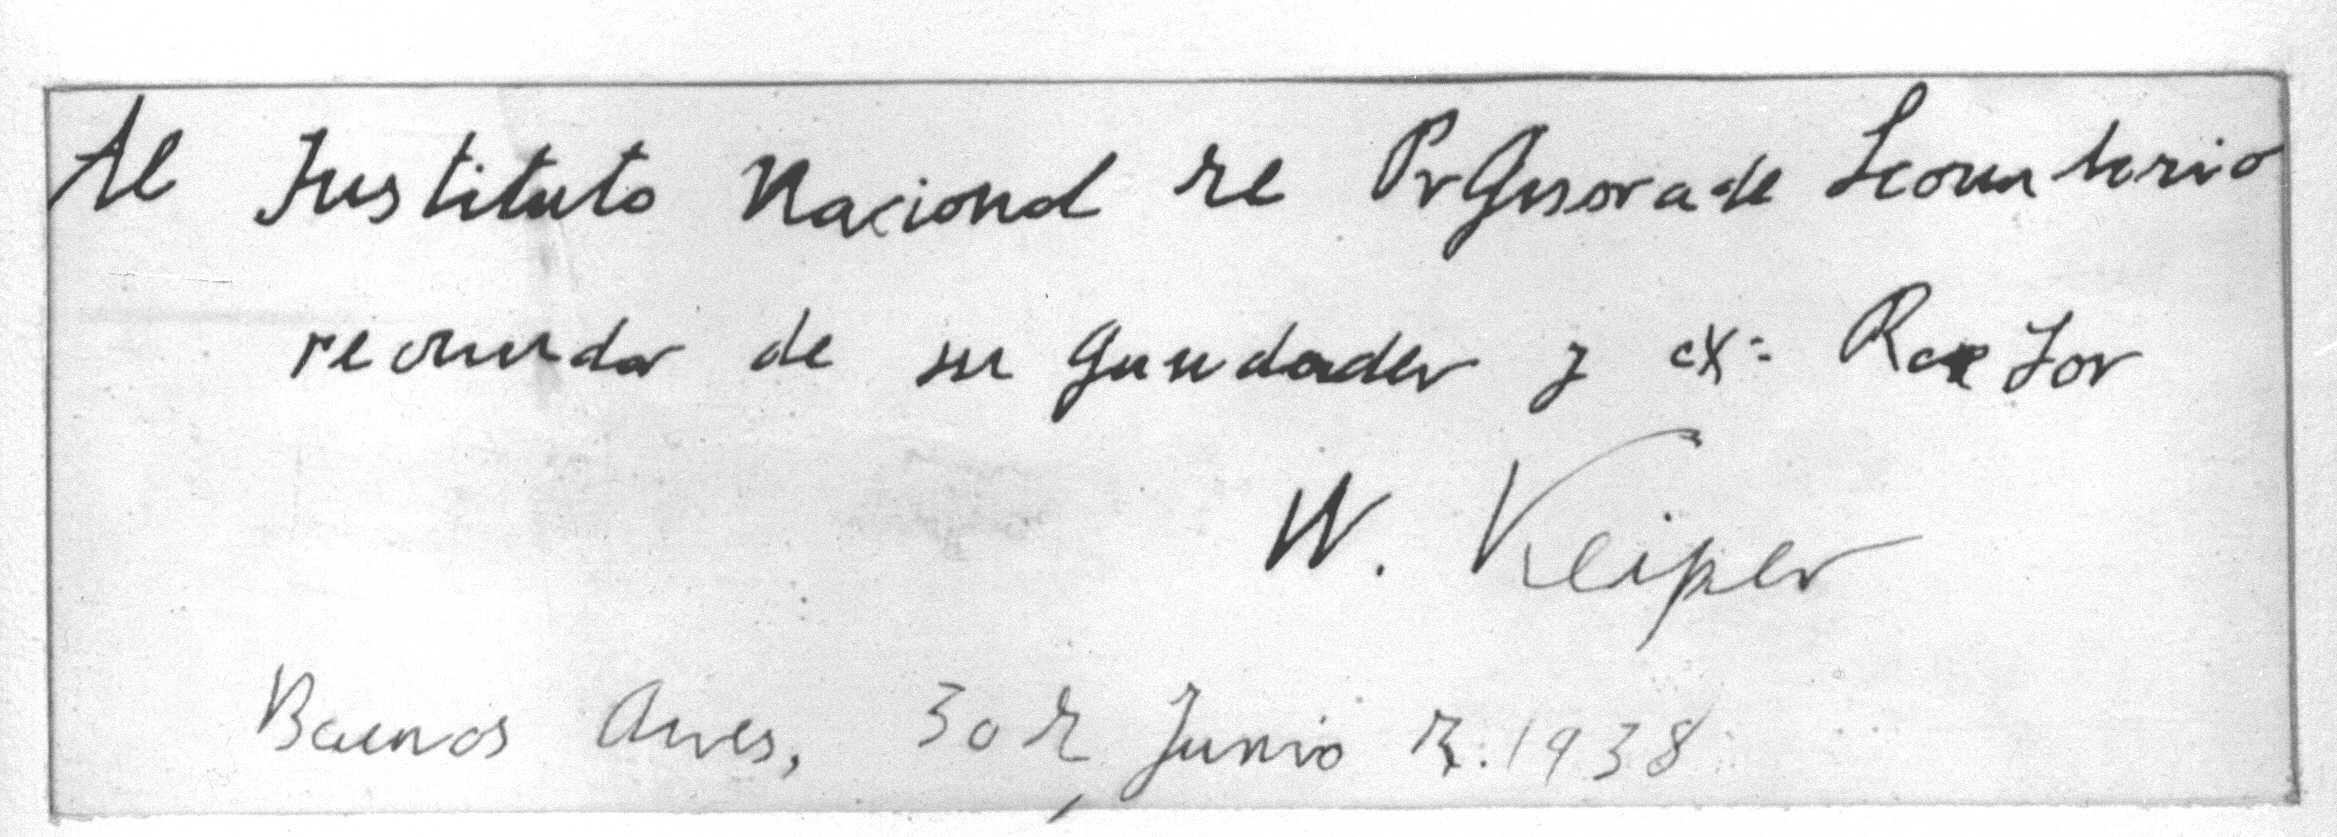 Al Instituto Nacional de Profesorado Secundario
recuerdo de su fundador y ex: Rector
W. Keiper
Buenos Aires, 30 de Junio de 1938